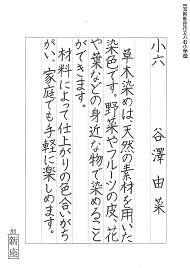 小六　谷澤由菜
草木染めは、天然の素材を用いた
染色です。野菜やフルーツの皮、花
や葉などの身近な物で染めること
ができます。
材料によって仕上がりの色合いがち
がい、家庭でも手軽に楽しめます。